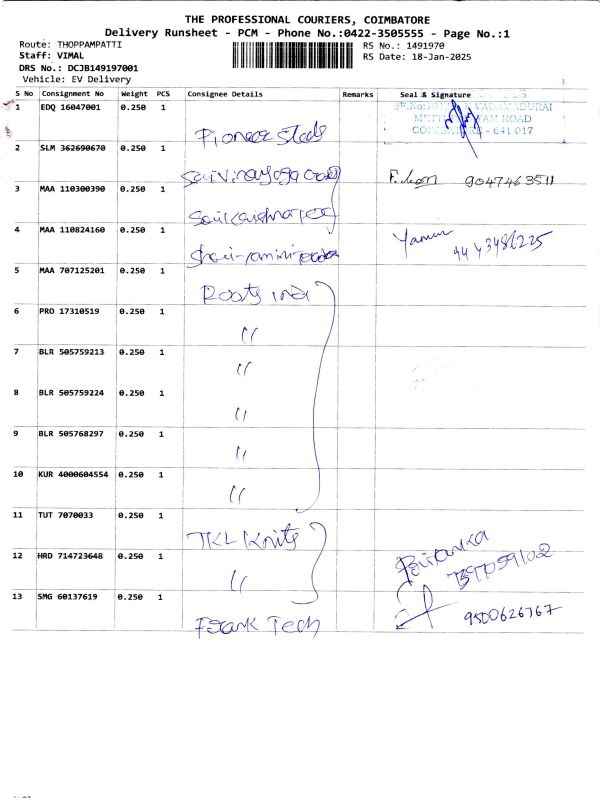 THE PROFESSIONAL COURIERS, COIMBATORE
Delivery Runsheet - PCM - Phone No.:0422-3505555 - Page No.:1
Route: THOPPAMPATTI
RS No.: 1491970
Staff: VIMAL
RS Date: 18-Jan-2025
DRS No.: DCJB149197001
Vehicle: EV Delivery
S No Consignment No Weight PCS Consignee Details Remarks Seal & Signature
1 EDQ 16047001 0.250 1
ROAD
- 641 017
Pioneer Steels
2 SLM 362690670 0.250 1
9047463511
3 MAA 110300390 0.250 1
4 MAA 110824160 0.250 1
Yamun
5 MAA 707125201 0.250 1
Roots ind
6 PRO 17310519 0.250 1
"
7 BLR 505759213 0.250 1
"
8 BLR 505759224 0.250 1
"
9 BLR 505768297 0.250 1
"
10 KUR 4000604554 0.250 1
"
11 TUT 7070033 0.250 1
TKL Knits
12 HRD 714723648 0.250 1
"
Priyanka
13 SMG 60137619 0.250 1
Tech
9500626767